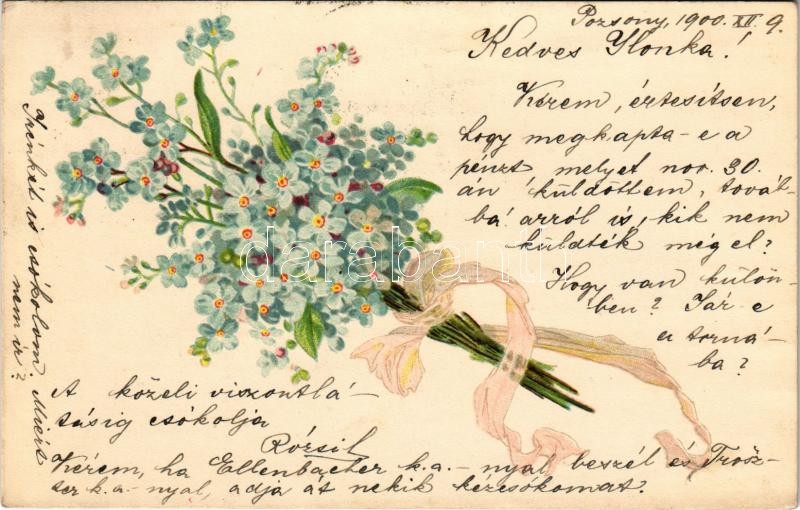 Pozsony, 1900. XII 9.
Kedves Ylonka!
Kérem, értesítsen,
hogy megkapta-e a
pénzt melyet nov. 30.
án küldöttem, továb-
bá arról is, kik nem
küldték még el?
Hogy van külön-
ben? Jár-e
a torná-
ba?
A közeli viszontlá-
tásig csókolja
Rózsil
Kérem, ha Ellenbacher k.a.-nyal beszél és Trosz-
ter k.a.-nyal, adja át nekik kézcsókomat.
Irénkét is csókolom. Miért
nem ír?
darabanth